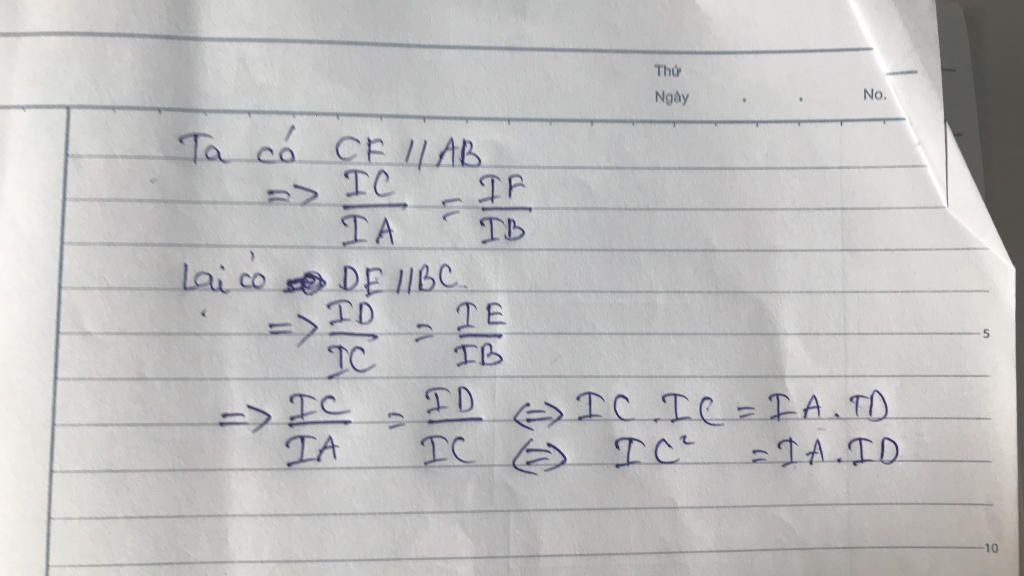 Thứ
Ngày . . No.
Ta có CF // AB
=> IC/IA = IF/IB
Lại có DE // BC
=> ID/IC = IE/IB
=> IC/IA = ID/IC <=> IC.IC = IA.ID
<=> IC² = IA.ID
5
10